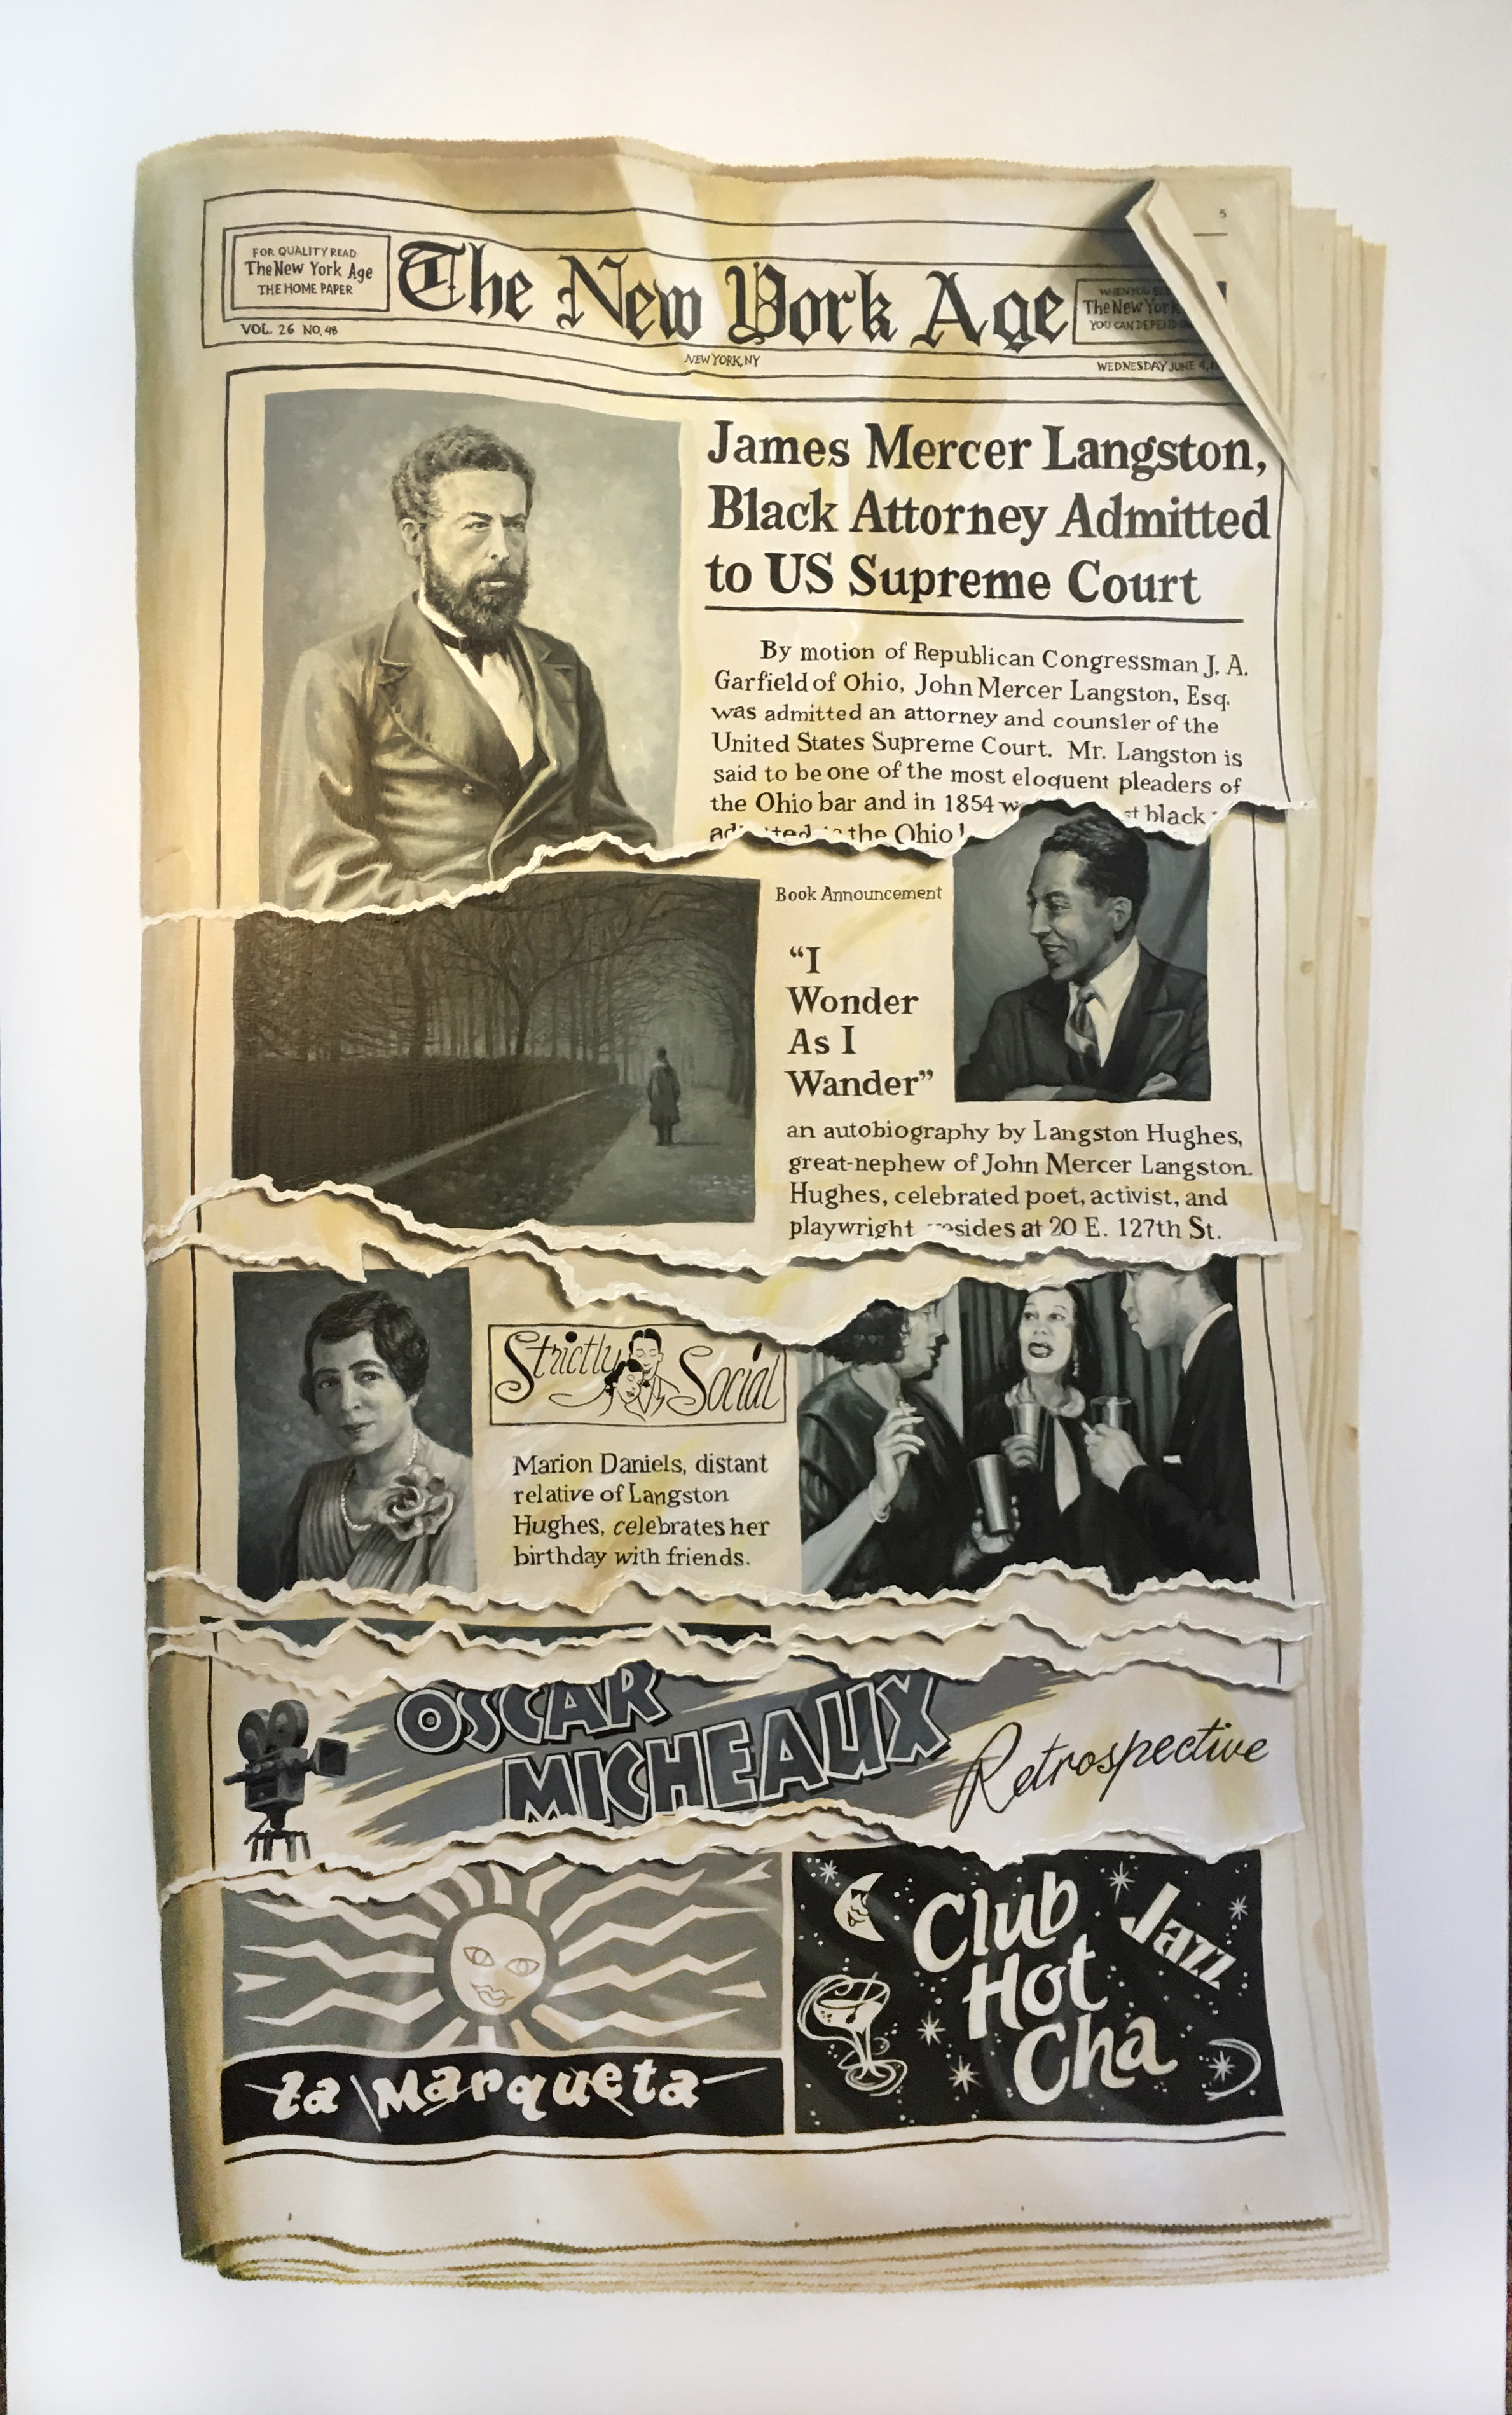 5
FOR QUALITY READ
The New York Age
THE HOME PAPER
The New York Age
WHEN YOU
The New York
YOU CAN DEPEND
VOL. 26 NO. 48
NEW YORK, NY
WEDNESDAY JUNE 4,
James Mercer Langston,
Black Attorney Admitted
to US Supreme Court
By motion of Republican Congressman J. A.
Garfield of Ohio, John Mercer Langston, Esq.
was admitted an attorney and counsler of the
United States Supreme Court. Mr. Langston is
said to be one of the most eloquent pleaders of
the Ohio bar and in 1854 black
the Ohio
Book Announcement
“I
Wonder
As I
Wander”
an autobiography by Langston Hughes,
great-nephew of John Mercer Langston.
Hughes, celebrated poet, activist, and
playwright resides at 20 E. 127th St.
Strictly Social
Marion Daniels, distant
relative of Langston
Hughes, celebrates her
birthday with friends.
OSCAR
MICHEAUX
Retrospective
La Marqueta
Club
Hot
Cha
Jazz